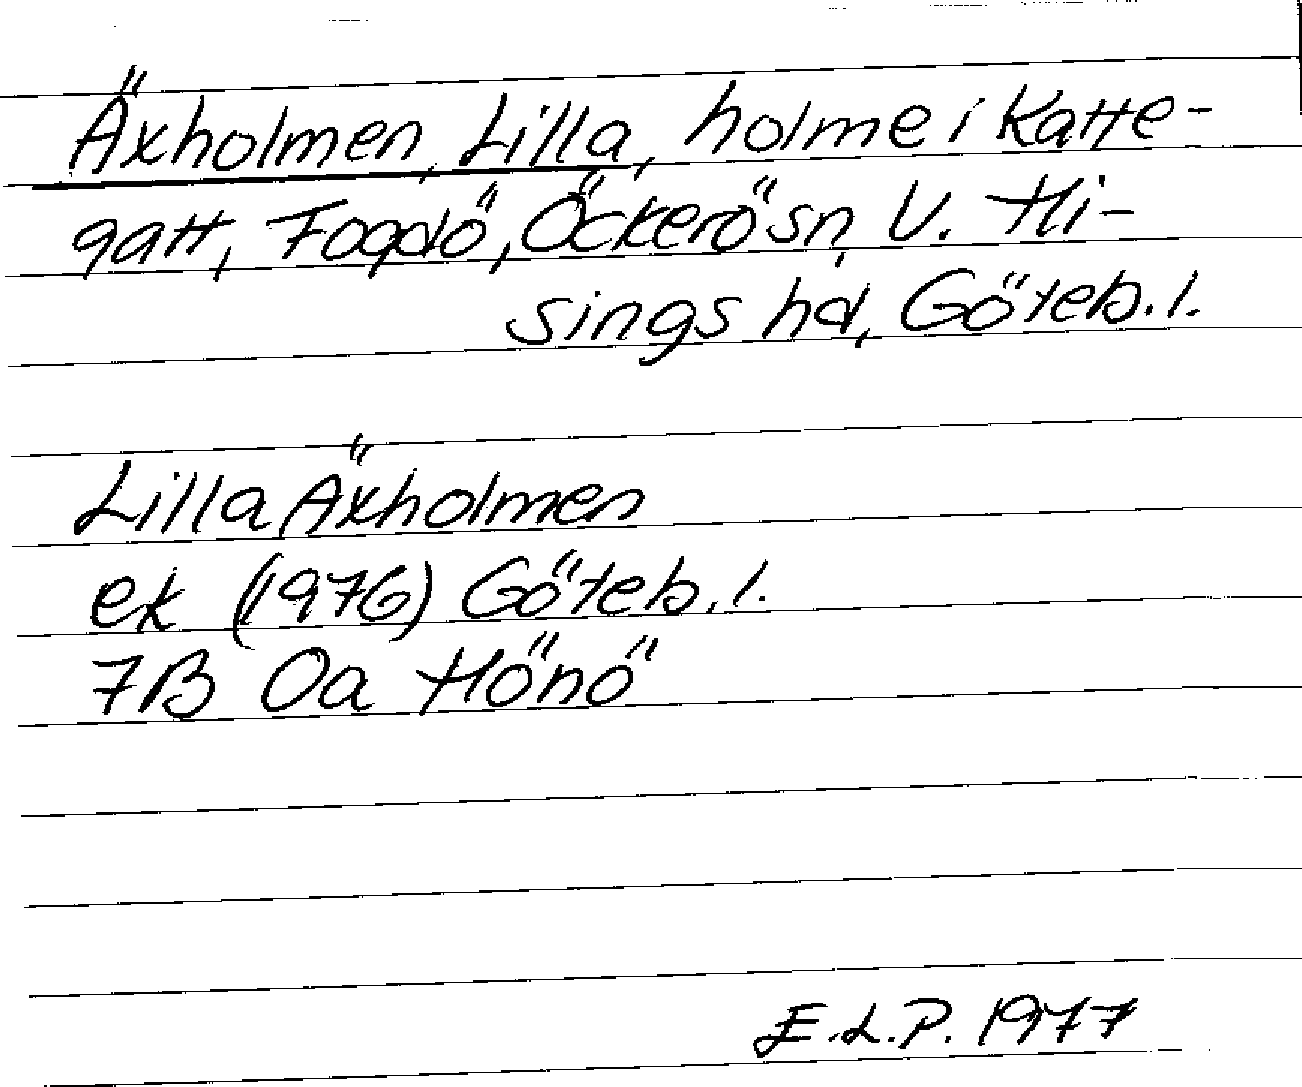 Äxholmen, Lilla, holme i Katte-
gatt, Fogdö, Öckerö sn, V. Hi-
sings hd, Göteb. l.
Lilla Äxholmen
ek (1976) Göteb. l.
7B 0a Hönö
E.L.P. 1977